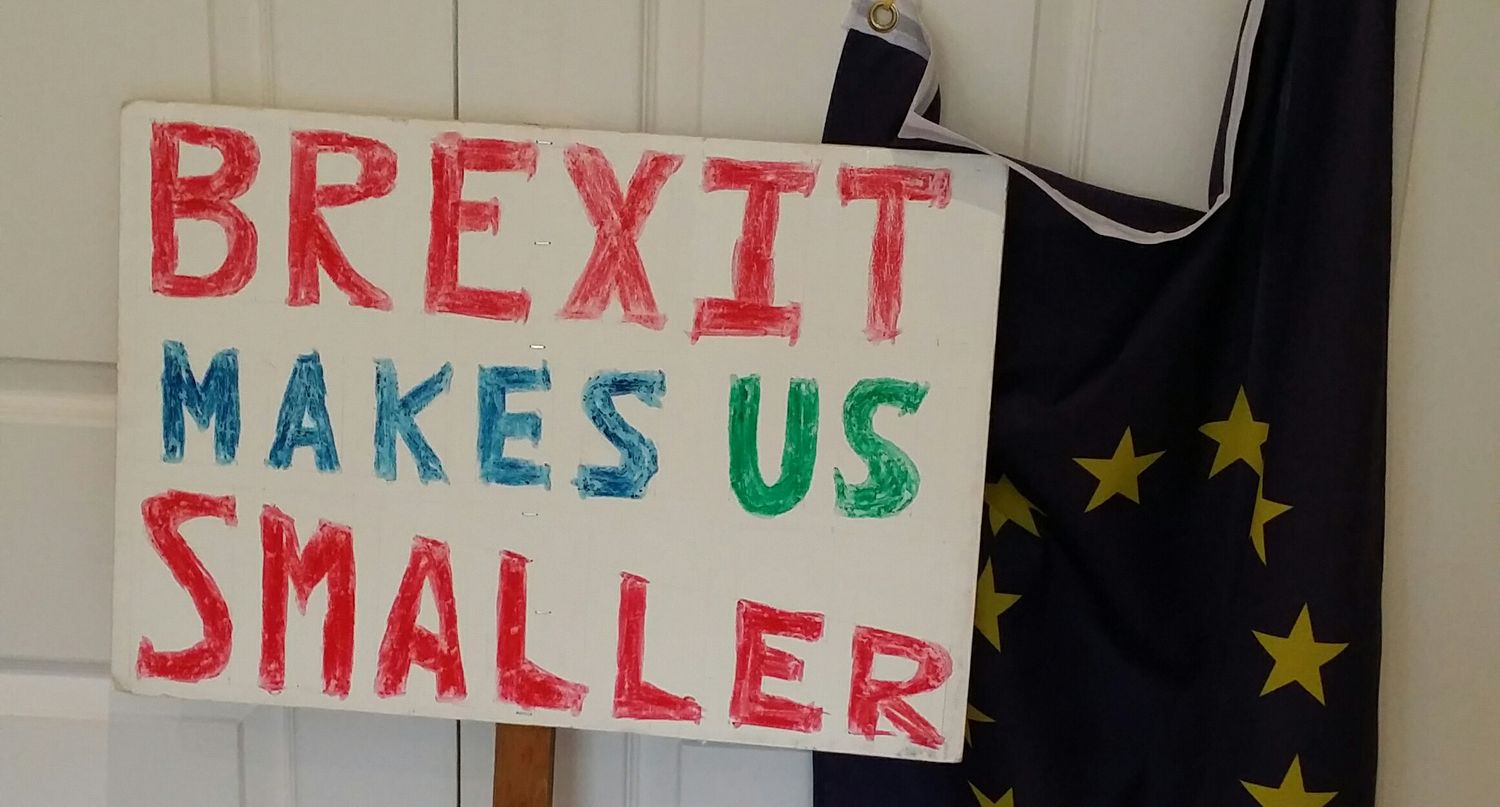 BREXIT
MAKES US
SMALLER